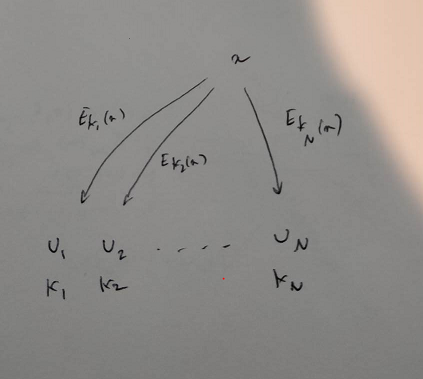 x
E_{k_1}(x) E_{k_N}(x)
E_{k_2}(x)
U_1 U_2 ..... U_N
k_1 k_2 k_N